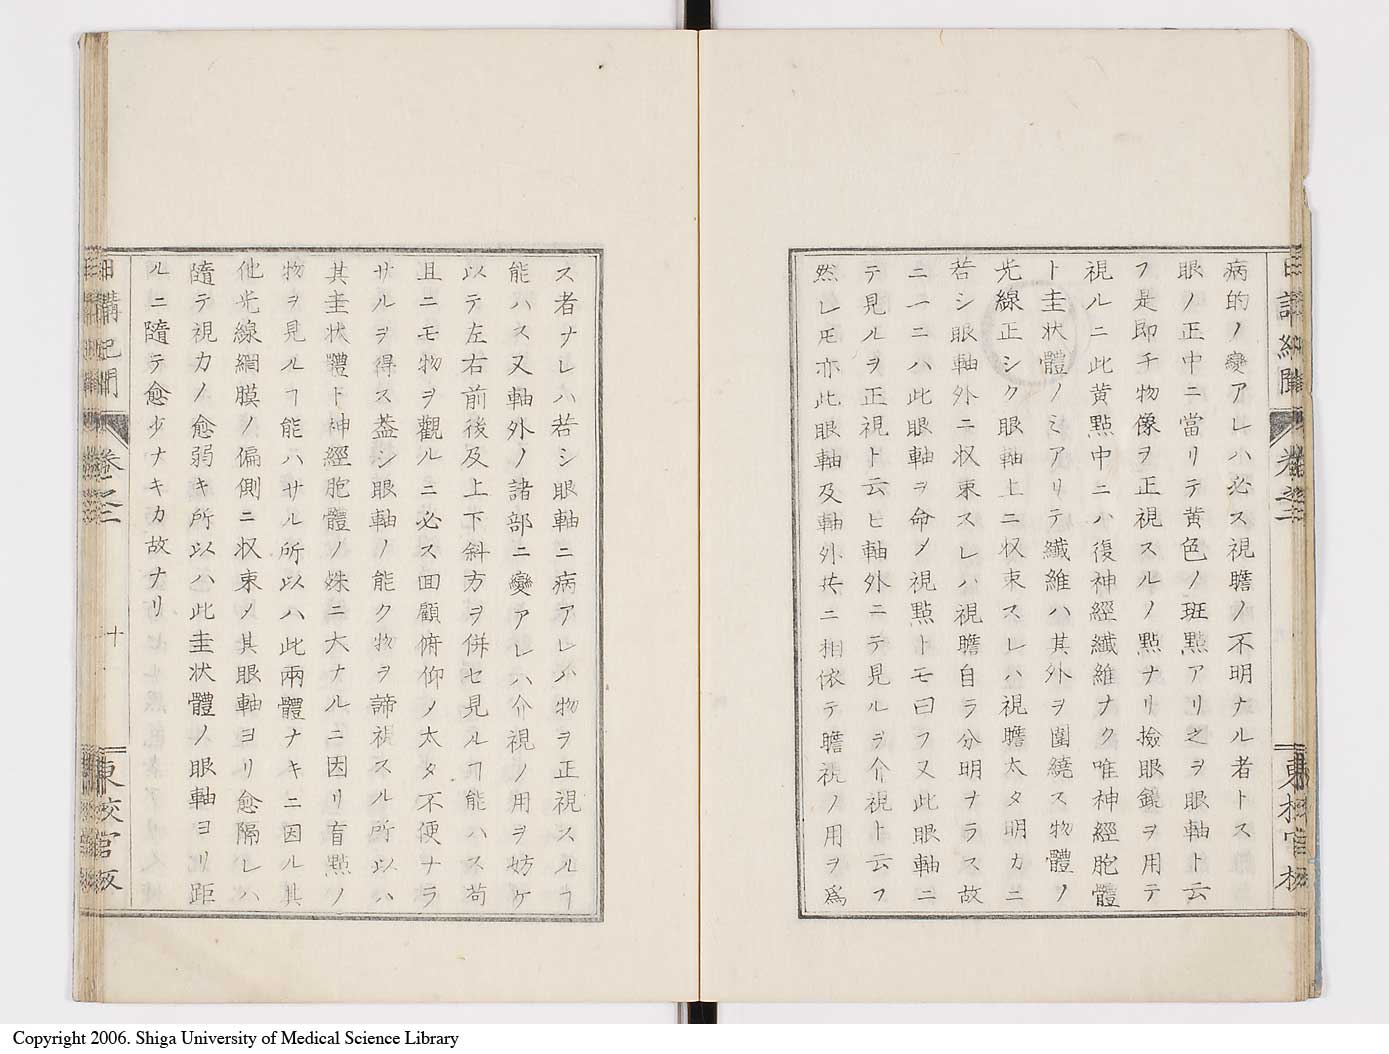 病的ノ變アレハ必ス視瞻ノ不明ナル者トス
眼ノ正中ニ當リテ黄色ノ斑點アリ之ヲ眼軸ト云
フ是即チ物像ヲ正視スルノ點ナリ撿眼鏡ヲ用テ
視ルニ此黄點中ニハ復神經纎維ナク唯神經胞體
ト圭状體ノミアリテ纎維ハ其外ヲ圍繞ス物體ノ
光線正シク眼軸上ニ収束スレハ視瞻太タ明カニ
若シ眼軸外ニ収束スレハ視瞻自ラ分明ナラス故
ニ一ニハ此眼軸ヲ命メ視點トモ曰フ又此眼軸ニ
テ見ルヲ正視ト云ヒ軸外ニテ見ルヲ介視ト云フ
然レ𪜈亦此眼軸及軸外共ニ相依テ瞻視ノ用ヲ爲
ス者ナレハ若シ眼軸ニ病アレハ物ヲ正視スルヿ
能ハス又軸外ノ諸部ニ變アレハ介視ノ用ヲ妨ケ
以テ左右前後及上下斜方ヲ併セ見ルヿ能ハス苟
且ニモ物ヲ觀ルニ必ス面顧俯仰メ太タ不便ナラ
サルヲ得ス蓋シ眼軸ノ能ク物ヲ諦視スル所以ハ
其圭状體ト神經胞體ノ姝ニ大ナルニ因リ盲點ノ
物ヲ見ルヿ能ハサル所以ハ此兩體ナキニ因ル其
他光線綱膜ノ偏側ニ収束メ其眼軸ヨリ愈隔レハ
隨テ視力ノ愈弱キ所以ハ此圭状體ノ眼軸ヨリ距
ルニ隨テ愈少ナキカ故ナリ
日講記聞
卷之二
十
東校官板
Copyright 2006. Shiga University of Medical Science Library